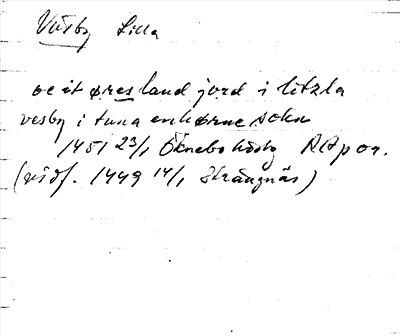 Väsby Lilla
oc it øres land jord i litzla
vesby i tuna enhørne sokn
1451 23/1 Öknebo hdsbr RAp or.
(vidf. 1449 14/1 Strängnäs)